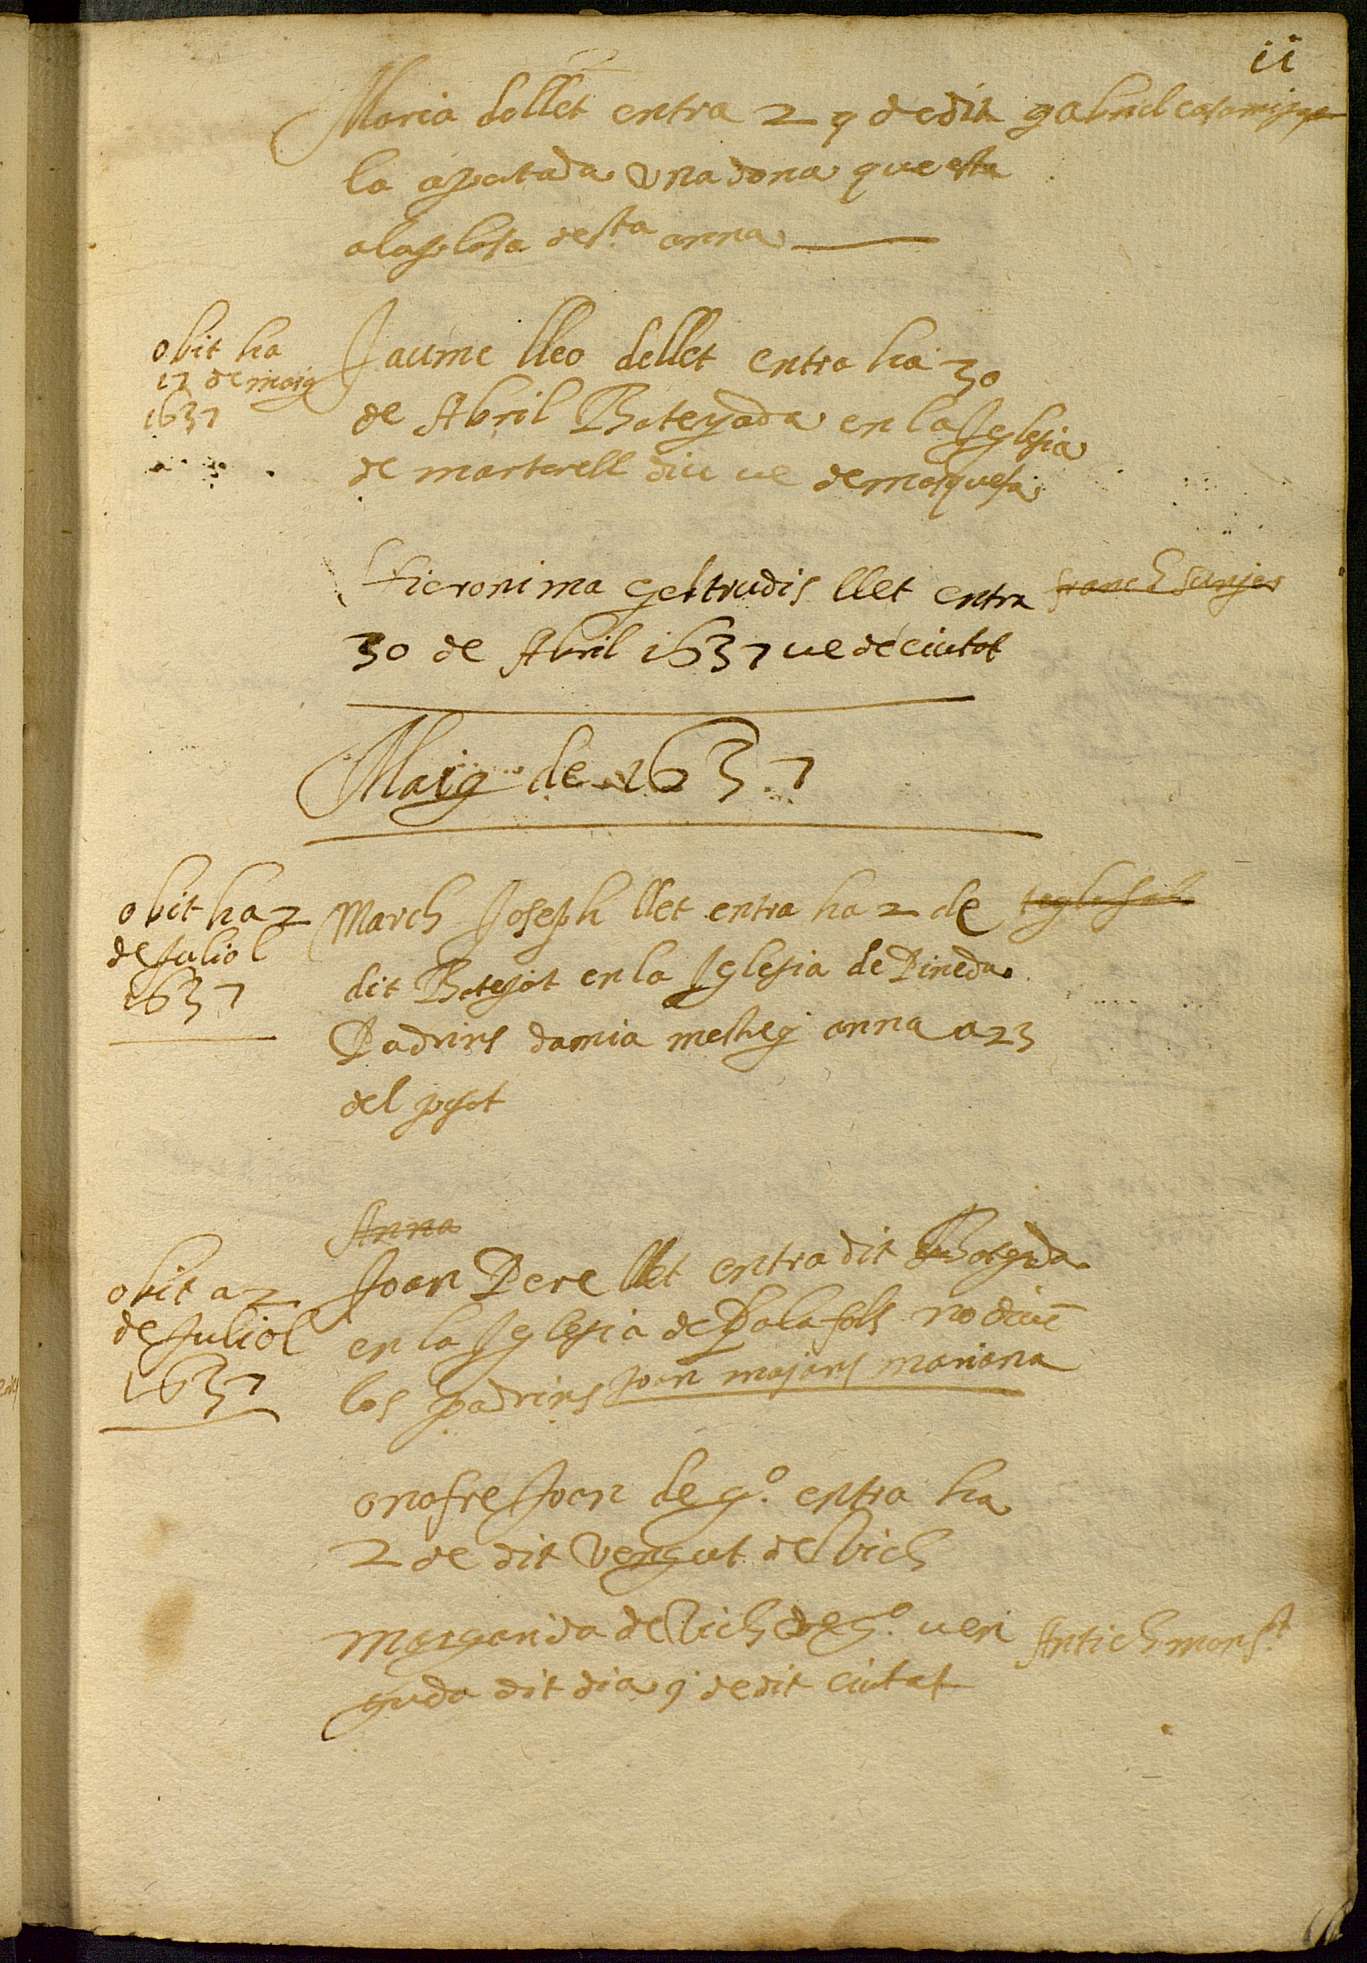 ii
Maria de llet entra 29 de dit gabriel
la aportada una dona que esta
a la plasa de sta anna
obit ha
17 de maig
1637
Jaume lleo de llet entra ha 30
de Abril Bateyada en la Iglesia
de martorell diu ve de masquefa
Hieronima geltrudis llet entra
30 de Abril 1637 ve de ciutat
Maig de 1637
obit ha 2
de Juliol
1637
March Joseph llet entra ha 2 de
dit Batejat en la Iglesia de Pineda
Padrins damia mestre y anna a 23
del pasat
Anna
obit a 2
de Juliol
1637
Joan Pere llet entra dit Bategada
en la Iglesia de Palafols no diuē
los padrins Joan majans mariana
onofre Joan de gº. entra ha
2 de dit vengut de Vich
Margarida de Vich de gº. ven
guda dit dia y de dit ciutat
Antich monst